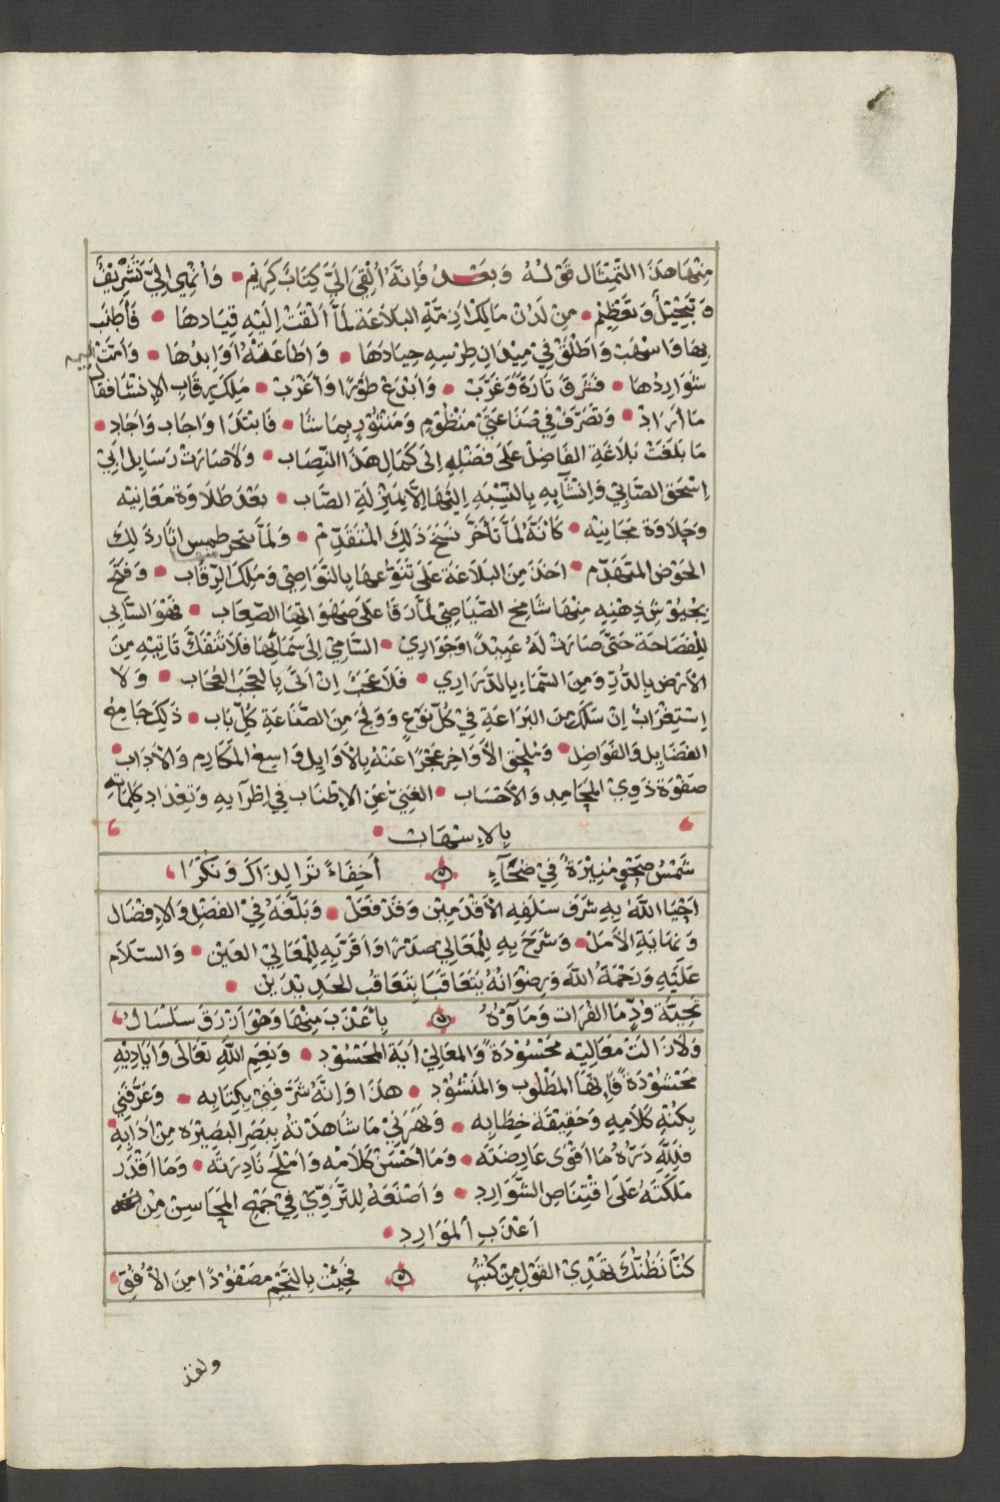 مِنْهَا هَذَا التِّمْثَال قَوْلُهُ وَبَعْدُ فَإِنَّهُ أُلْقِيَ إِلَيَّ كِتَابٌ كَرِيْم وَأُنْمِيَ إِلَيَّ تَشْرِيْفٌ
وَتَبْجِيْلٌ وَتَعْظِيْم مِنْ لَدُنْ مَالِكْ أَزِمَّةِ البَلَاغَة لَمَّا أَلْقَتْ إِلَيْهِ قِيَادَهَا فَأَطْنَب
بِهَا وَاسْهَبْ وَاطْلَقَ فِيْ مِيْدَانِ طِرْسِهِ جِيَادَهَا وَاطَاعَتْهُ أَوَابِدُهَا وَامَّتْ اليه
شَوَارِدُهَا فَشَرَّقَ تَارَةً وَغَرَّبْ وَابْدَعَ طَوْرًا وَأَغْرَبْ مَلِكَ رِقَابِ الإِنْشَا فَقَا
مَا أَرَادْ وَتَصَرَّفَ فِيْ صَنَاعَتَيْ مَنْظُوْمٍ وَمَنْثُوْرٍ بِمَا شَا فَابْتَدَا وَاجَاب وَاَجَاد
مَا بَلَغَتْ بَلَاغَةِ الفَاضِلْ عَلَى فَضْلِهِ إِلَى كَمَالِ هَذَا النِّصَاب وَلَا صَارَتْ رَسَايِل ابِيْ
اِسْحَق الصَّابِيْ وَاِنْشَآيِهِ بِالنِّسْبَهِ اِلَيْهَا اِلَّا بِمَنْزِلَةِ الصَّاب بَعْدَ طَلَاوَة مَعَانِيْه
وَحَلَاوَة مَجَانِيْه كَأَنَّهُ لَمَّا تَأَخَّرَ نَسَخَ ذَلِكَ الْمُتَقَدِّمْ وَلَمَّا تبحر طمس اثار ذلك
الحَوْضِ المتَهَدِّم اَخَذَ مِنَ البَلَاغَة عَلَى تَنَوُّعِهَا بِالنَّوَاصِيْ وَمَلَكَ الرِّقَاب وَفَتَحَ
بِجُيُوْشِ ذِهْنِهِ مِنْهَا شَامِخَ الصَّيَاصِيْ لَمَّا رَقَا عَلَى صَهَوَاتِهَا الصِّعَاب فَهْوَ السَّابِي
لِلْفَصَاحَة حَتَّى صَارَتْ لَهُ عَبِيْدًا وَجَوَارِيْ السَّامِيْ اِلَى سَمَائِهَا فَلَا تَنْفَكُّ تَاتِيْهِ مِنَ
الأَرْضِ بِالدُّرِّ وَمِنَ السَّمَاءِ بِالدَّرَارِي فَلَا عَجَبْ اِنْ اَتَى بِالعَجَبِ العُجَاب وَلَا
اِسْتِغْرَابْ اِنْ سَلَكَ مِنَ البَرَاعَةِ فِيْ كُلِّ نَوْعٍ وَوَلَجَ مِنَ الصَّنَاعَةِ كُلِّ بَاب ذَلِكَ جَامِعُ
الفَضَايِل وَالفَوَاضِل وَمُلْحِقُ الأَوَاخِر عَجْزًا عَنْهُ بِالأَوَايِل وَاسِعُ المَكَارِم وَالآدَاب
صَفْوَة ذَوِيْ المَحَامِدِ وَالأَحْسَاب الغَنِيُّ عَنِ الإِطْنَاب فِي اطْرَآيِهِ وَتِعْدَادِ كَلِمَاتِهِ
بِالإِسْهَاب
شَمْسُ صَحْوٍ مُنِيْرَةٌ فِيْ ضُحَآءٍ أَخِفَاءً تَرَا لِذَاكَ وَنُكْرَا
اَحْيَا اللّٰهُ بِهِ شَرَفَ سَلَفِهِ الأَقْدَمِيْن وَقَدْ فَعَلْ وَبَلَّغَهُ فِيْ الفَضْلِ وَالإِفْضَال
وَنِهَايَةِ الأَمَلْ وَشَرَحَ بِهِ لِلْمَعَالِيْ صَدْرًا وَاَقَرَّ بِهِ لِلْمَعَالِيْ العَيْن وَالسَّلَام
عَلَيْهِ وَرَحْمَةُ اللّٰه وَرِضْوَانُهُ يَتَعَاقَبَا بِتَعَاقُبِ الجَدِيْدَيْن
تَحِيَّةَ وُدٍّ مَا الفُرَات وَمَآؤُهُ بِأَعْذَبَ مِنْهَا وَهْوَ أَزْرَقُ سَلْسَالُ
وَلَا زَالَتْ مَعَالِيْه مَحْسُوْدَةً وَالمَعَالِيْ اَبَدًا لمَحْسُوْد وَنِعَمِ اللّٰهِ تَعَالَى وَأَيَادِيْهِ
مَحْشُوْدَةً فَإِنَّهَا المَطْلُوب وَالمَنْشُوْد هَذَا وَإِنَّهُ شَرَّفَنِيْ بِكِتَابِه وَعَرَّفَنِي
بِكُنْهِ كَلَامِهِ وَحَقِيْقَة خِطَابِه وَبَهَرَنِيْ مَا شَاهَدْتُهُ بِبَصَرِ البَصِيْرَه مِنْ اَدَابِهِ
فَلِلّٰهِ دَرُّهُ مَا اَقْوَى عَارِضَتَه وَمَا اَحْسَنَ كَلَامَه وَاَمْلَحَ نَادِرَتَه وَمَا اَقْدَر
مَلَكَتَهُ عَلَى اقْتِنَاصِ الشَّوَارِدِ وَاَصْنَعَهُ لِلتَّرَوِّيْ فِيْ جَمْعِ المَحَاسِن مِنْ
اَعْذَبِ المَوَارِد
كُنَّا نَظُنُّكَ تُهْدِيْ القَوْلَ مِنْ كُتُبٍ فَجِئْتَ بِالنَّجْمِ مَصْفُوْدًا مِنَ الأُفُقِ
ولقد